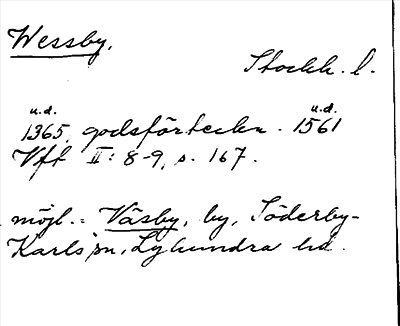 Wessby.
Stockh. l.
u.d. u.d.
1365, godsförteckn. 1561
Vft II: 8-9, s. 167.
möjl. = Väsby, by, Söderby-
Karls sn, Lyhundra hd.